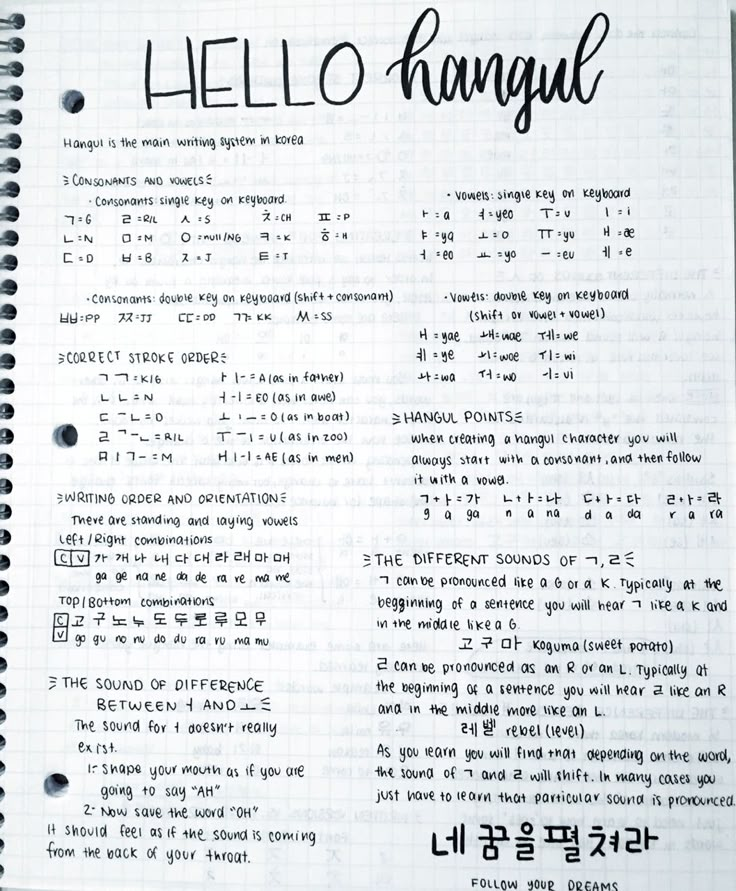 HELLO hangul
Hangul is the main writing system in Korea
CONSONANTS AND VOWELS
· Consonants: single key on keyboard.
ㄱ=G ㄹ=R/L ㅅ=S ㅊ=CH ㅍ=P
ㄴ=N ㅁ=M ㅇ=null/NG ㅋ=K ㅎ=H
ㄷ=D ㅂ=B ㅈ=J ㅌ=T
· Consonants: double key on keyboard (shift + consonant)
ㅃ=PP ㅉ=JJ ㄸ=DD ㄲ=KK ㅆ=SS
· Vowels: single key on keyboard
ㅏ=a ㅕ=yeo ㅜ=u ㅣ=i
ㅑ=ya ㅗ=o ㅠ=yu ㅐ=ae
ㅓ=eo ㅛ=yo ㅡ=eu ㅔ=e
· Vowels: double key on keyboard
(shift or vowel + vowel)
ㅒ=yae ㅙ=wae ㅞ=we
ㅖ=ye ㅚ=woe ㅟ=wi
ㅘ=wa ㅝ=wo ㅢ=vi
CORRECT STROKE ORDER
ㄱ ㄱ=K/G
ㄴ ㄴ=N
ㄷ ㅡㄴ=D
ㄹ ㄱㅡㄴ=R/L
ㅁ ㅣㄱㅡ=M
ㅏ ㅣㅡ=A (as in father)
ㅓ ㅡㅣ=EO (as in awe)
ㅗ ㅣㅡ=O (as in boat)
ㅜ ㅡㅣ=U (as in zoo)
ㅐ ㅣㅡㅣ=AE (as in men)
WRITING ORDER AND ORIENTATION
There are standing and laying vowels
Left/Right combinations
C V 가 개 나 내 다 대 라 래 마 매
ga ge na ne da de ra re ma me
Top/Bottom combinations
C 고 구 노 누 도 두 로 루 모 무
V go gu no nu do du ro ru mo mu
THE SOUND OF DIFFERENCE
BETWEEN ㅓ AND ㅗ
The sound for ㅓ doesn't really
exist.
1- Shape your mouth as if you are
going to say "AH"
2- Now save the word "OH"
It should feel as if the sound is coming
from the back of your throat.
HANGUL POINTS
when creating a hangul character you will
always start with a consonant, and then follow
it with a vowel.
ㄱ+ㅏ=가 ㄴ+ㅏ=나 ㄷ+ㅏ=다 ㄹ+ㅏ=라
g a ga n a na d a da r a ra
THE DIFFERENT SOUNDS OF ㄱ, ㄹ
ㄱ can be pronounced like a G or a K. Typically at the
begginning of a sentence you will hear ㄱ like a K and
in the middle like a G.
고구마 Koguma (sweet potato)
ㄹ can be pronounced as an R or an L. Typically at
the beginning of a sentence you will hear ㄹ like an R
and in the middle more like an L.
레벨 rebel (level)
As you learn you will find that depending on the word,
the sound of ㄱ and ㄹ will shift. In many cases you
just have to learn that particular sound is pronounced.
네 꿈을 펼쳐라
FOLLOW YOUR DREAMS